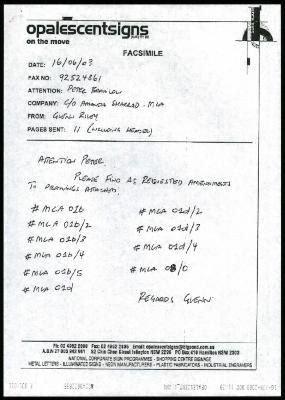 opalescentsigns
on the move
FACSIMILE
DATE: 16/06/03
FAX NO: 92524861
ATTENTION: PETER
COMPANY: C/O AMANDA SHARRAD - MCA
FROM: GLENN RILEY
PAGES SENT: 11 (INCLUDING HEADER)
ATTENTION PETER,
PLEASE FIND AS REQUESTED AMENDMENTS
TO DRAWINGS ATTACHED.
# MCA 01b
# MCA 01b/2
# MCA 01b/3
# MCA 01b/4
# MCA 01b/5
# MCA 01d
# MCA 01d/2
# MCA 01d/3
# MCA 01d/4
# MCA
REGARDS GLENN
Ph: 02 4952 2000 Fax: 02 4952 2495 Email: opalescentsigns@bigpond.com.au
A.B.N 27 003 962 961 52 Clyde Street Islington NSW 2296 PO Box 410 Hamilton NSW 2303
NATIONAL CORPORATE SIGN PROGRAMMES - SHOPPING CENTRE SIGNAGE
METAL LETTERS - ILLUMINATED SIGNS - NEON MANUFACTURERS - PLASTIC FABRICATORS - INDUSTRIAL ENGRAVERS